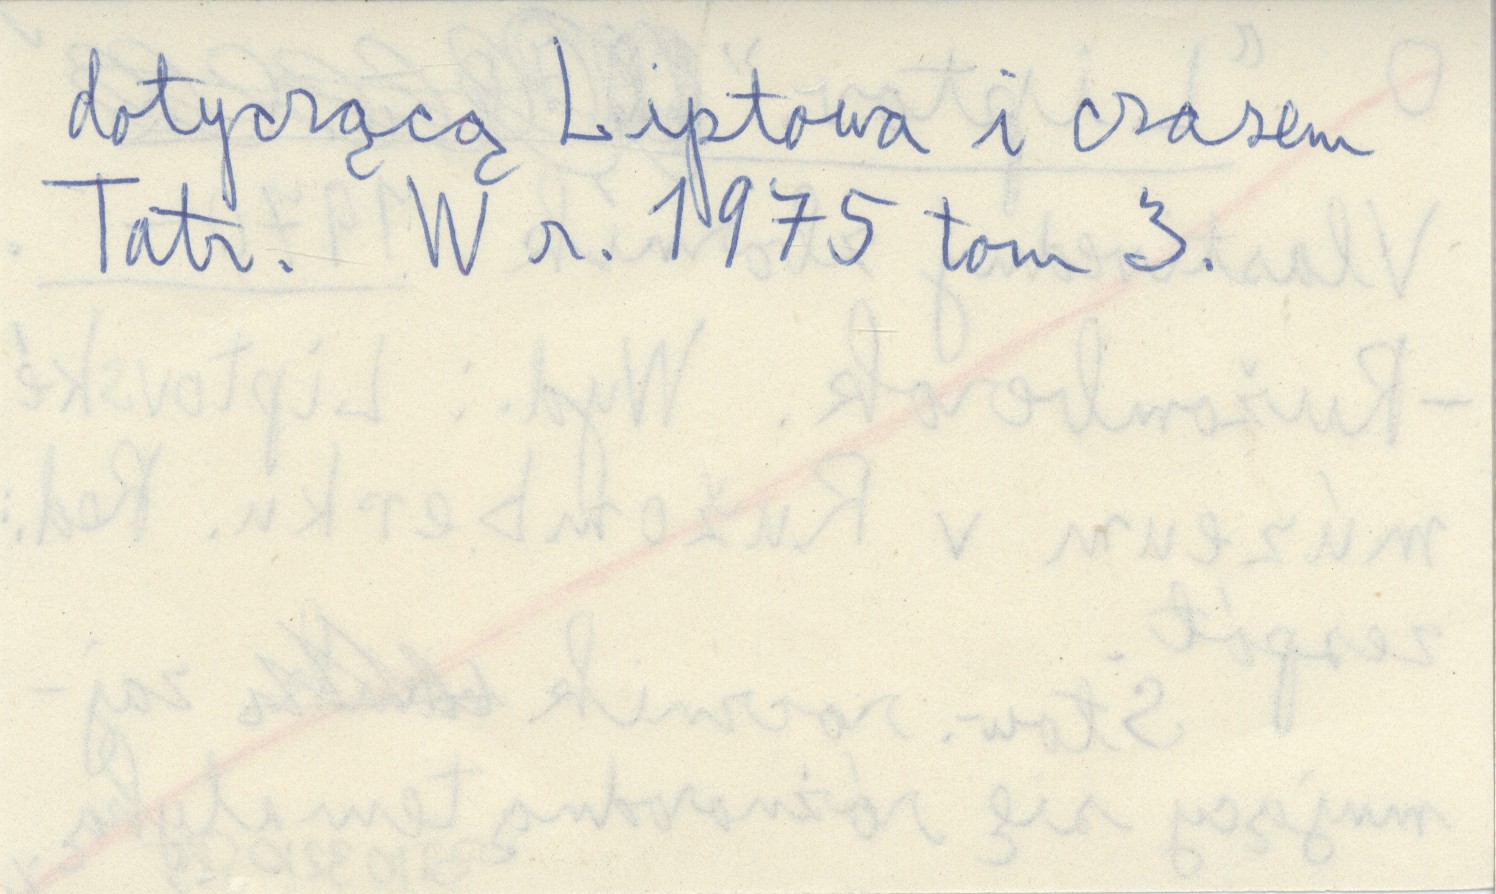 dotyczącą Liptowa i czasem
Tatr. W r. 1975 tom 3.